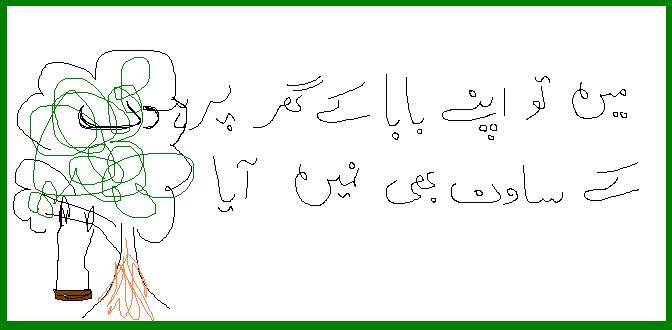 میں تو اپنے بابا کے گھر پر ہوں
کے ساون بھی نہیں آیا